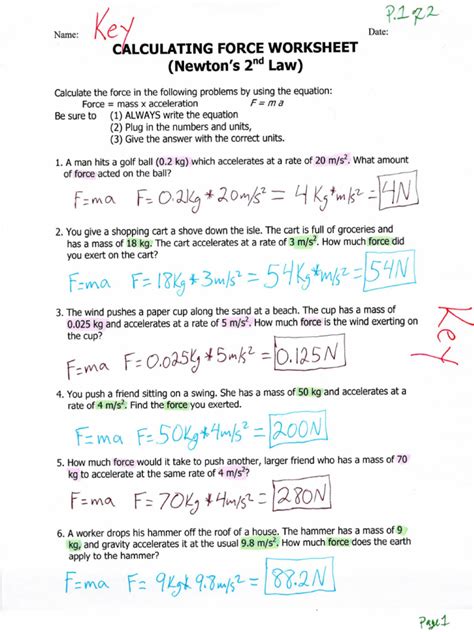 P.1 of 2
Name: Key Date:
CALCULATING FORCE WORKSHEET
(Newton's 2nd Law)
Calculate the force in the following problems by using the equation:
Force = mass x acceleration F = m a
Be sure to (1) ALWAYS write the equation
(2) Plug in the numbers and units,
(3) Give the answer with the correct units.
1. A man hits a golf ball (0.2 kg) which accelerates at a rate of 20 m/s². What amount
of force acted on the ball?
F=ma F=0.2Kg*20m/s² = 4Kg*m/s² = 4N
2. You give a shopping cart a shove down the isle. The cart is full of groceries and
has a mass of 18 kg. The cart accelerates at a rate of 3 m/s². How much force did
you exert on the cart?
F=ma F=18Kg*3m/s² = 54Kg*m/s² = 54N
3. The wind pushes a paper cup along the sand at a beach. The cup has a mass of
0.025 kg and accelerates at a rate of 5 m/s². How much force is the wind exerting on
the cup?
Key
F=ma F=0.025Kg*5m/s² = 0.125N
4. You push a friend sitting on a swing. She has a mass of 50 kg and accelerates at a
rate of 4 m/s². Find the force you exerted.
F=ma F=50Kg*4m/s² = 200N
5. How much force would it take to push another, larger friend who has a mass of 70
kg to accelerate at the same rate of 4 m/s²?
F=ma F=70Kg*4m/s² = 280N
6. A worker drops his hammer off the roof of a house. The hammer has a mass of 9
kg, and gravity accelerates it at the usual 9.8 m/s². How much force does the earth
apply to the hammer?
F=ma F=9Kg*9.8m/s² = 88.2N
Page 1